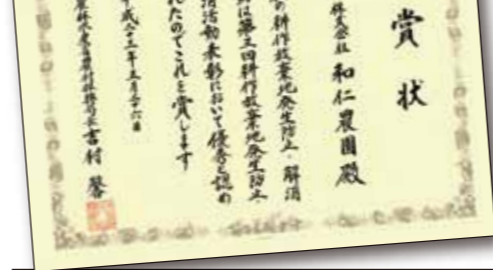 賞状
株式会社 和仁農園殿
の耕作放棄地発生防止・解消
は第三回耕作放棄地発生防止
消活動表彰において優秀と認め
れたのでこれを賞します
成二十三年五月二十六日
農林水産省農村振興局長 吉村 馨